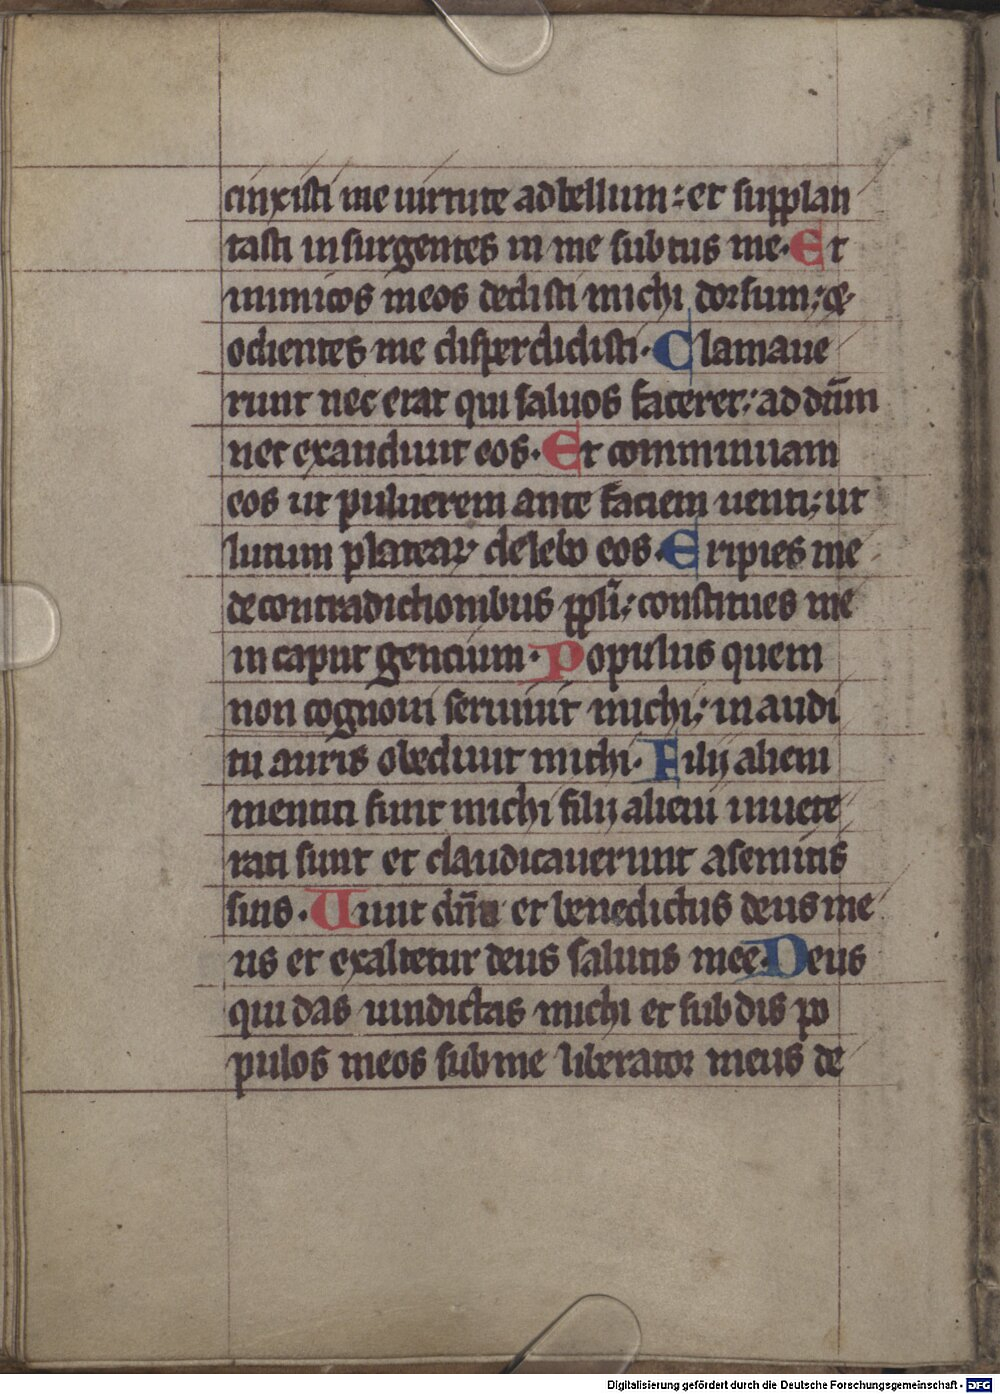 cinxisti me uirtute ad bellum: et supplan
tasti insurgentes in me subtus me. Et
inimicos meos dedisti michi dorsum: &
odientes me disperdidisti. Clamaue
runt nec erat qui saluos faceret: ad dn̄m
nec exaudiuit eos. Et comminuam
eos ut puluerem ante faciem uenti: ut
lutum plateaꝝ delebo eos. Eripies me
de contradictionibus ppl̄i: constitues me
in caput gencium. Populus quem
non cognoui seruiuit michi: in audi
tu auris obediuit michi. Filij alieni
mentiti sunt michi filij alieni inuete
rati sunt et claudicauerunt a semitis
suis. Uiuit dn̄s et benedictus deus me
us et exaltetur deus salutis mee. Deus
qui das uindictas michi et subdis po
pulos meos sub me liberator meus de
Digitalisierung gefördert durch die Deutsche Forschungsgemeinschaft - DFG